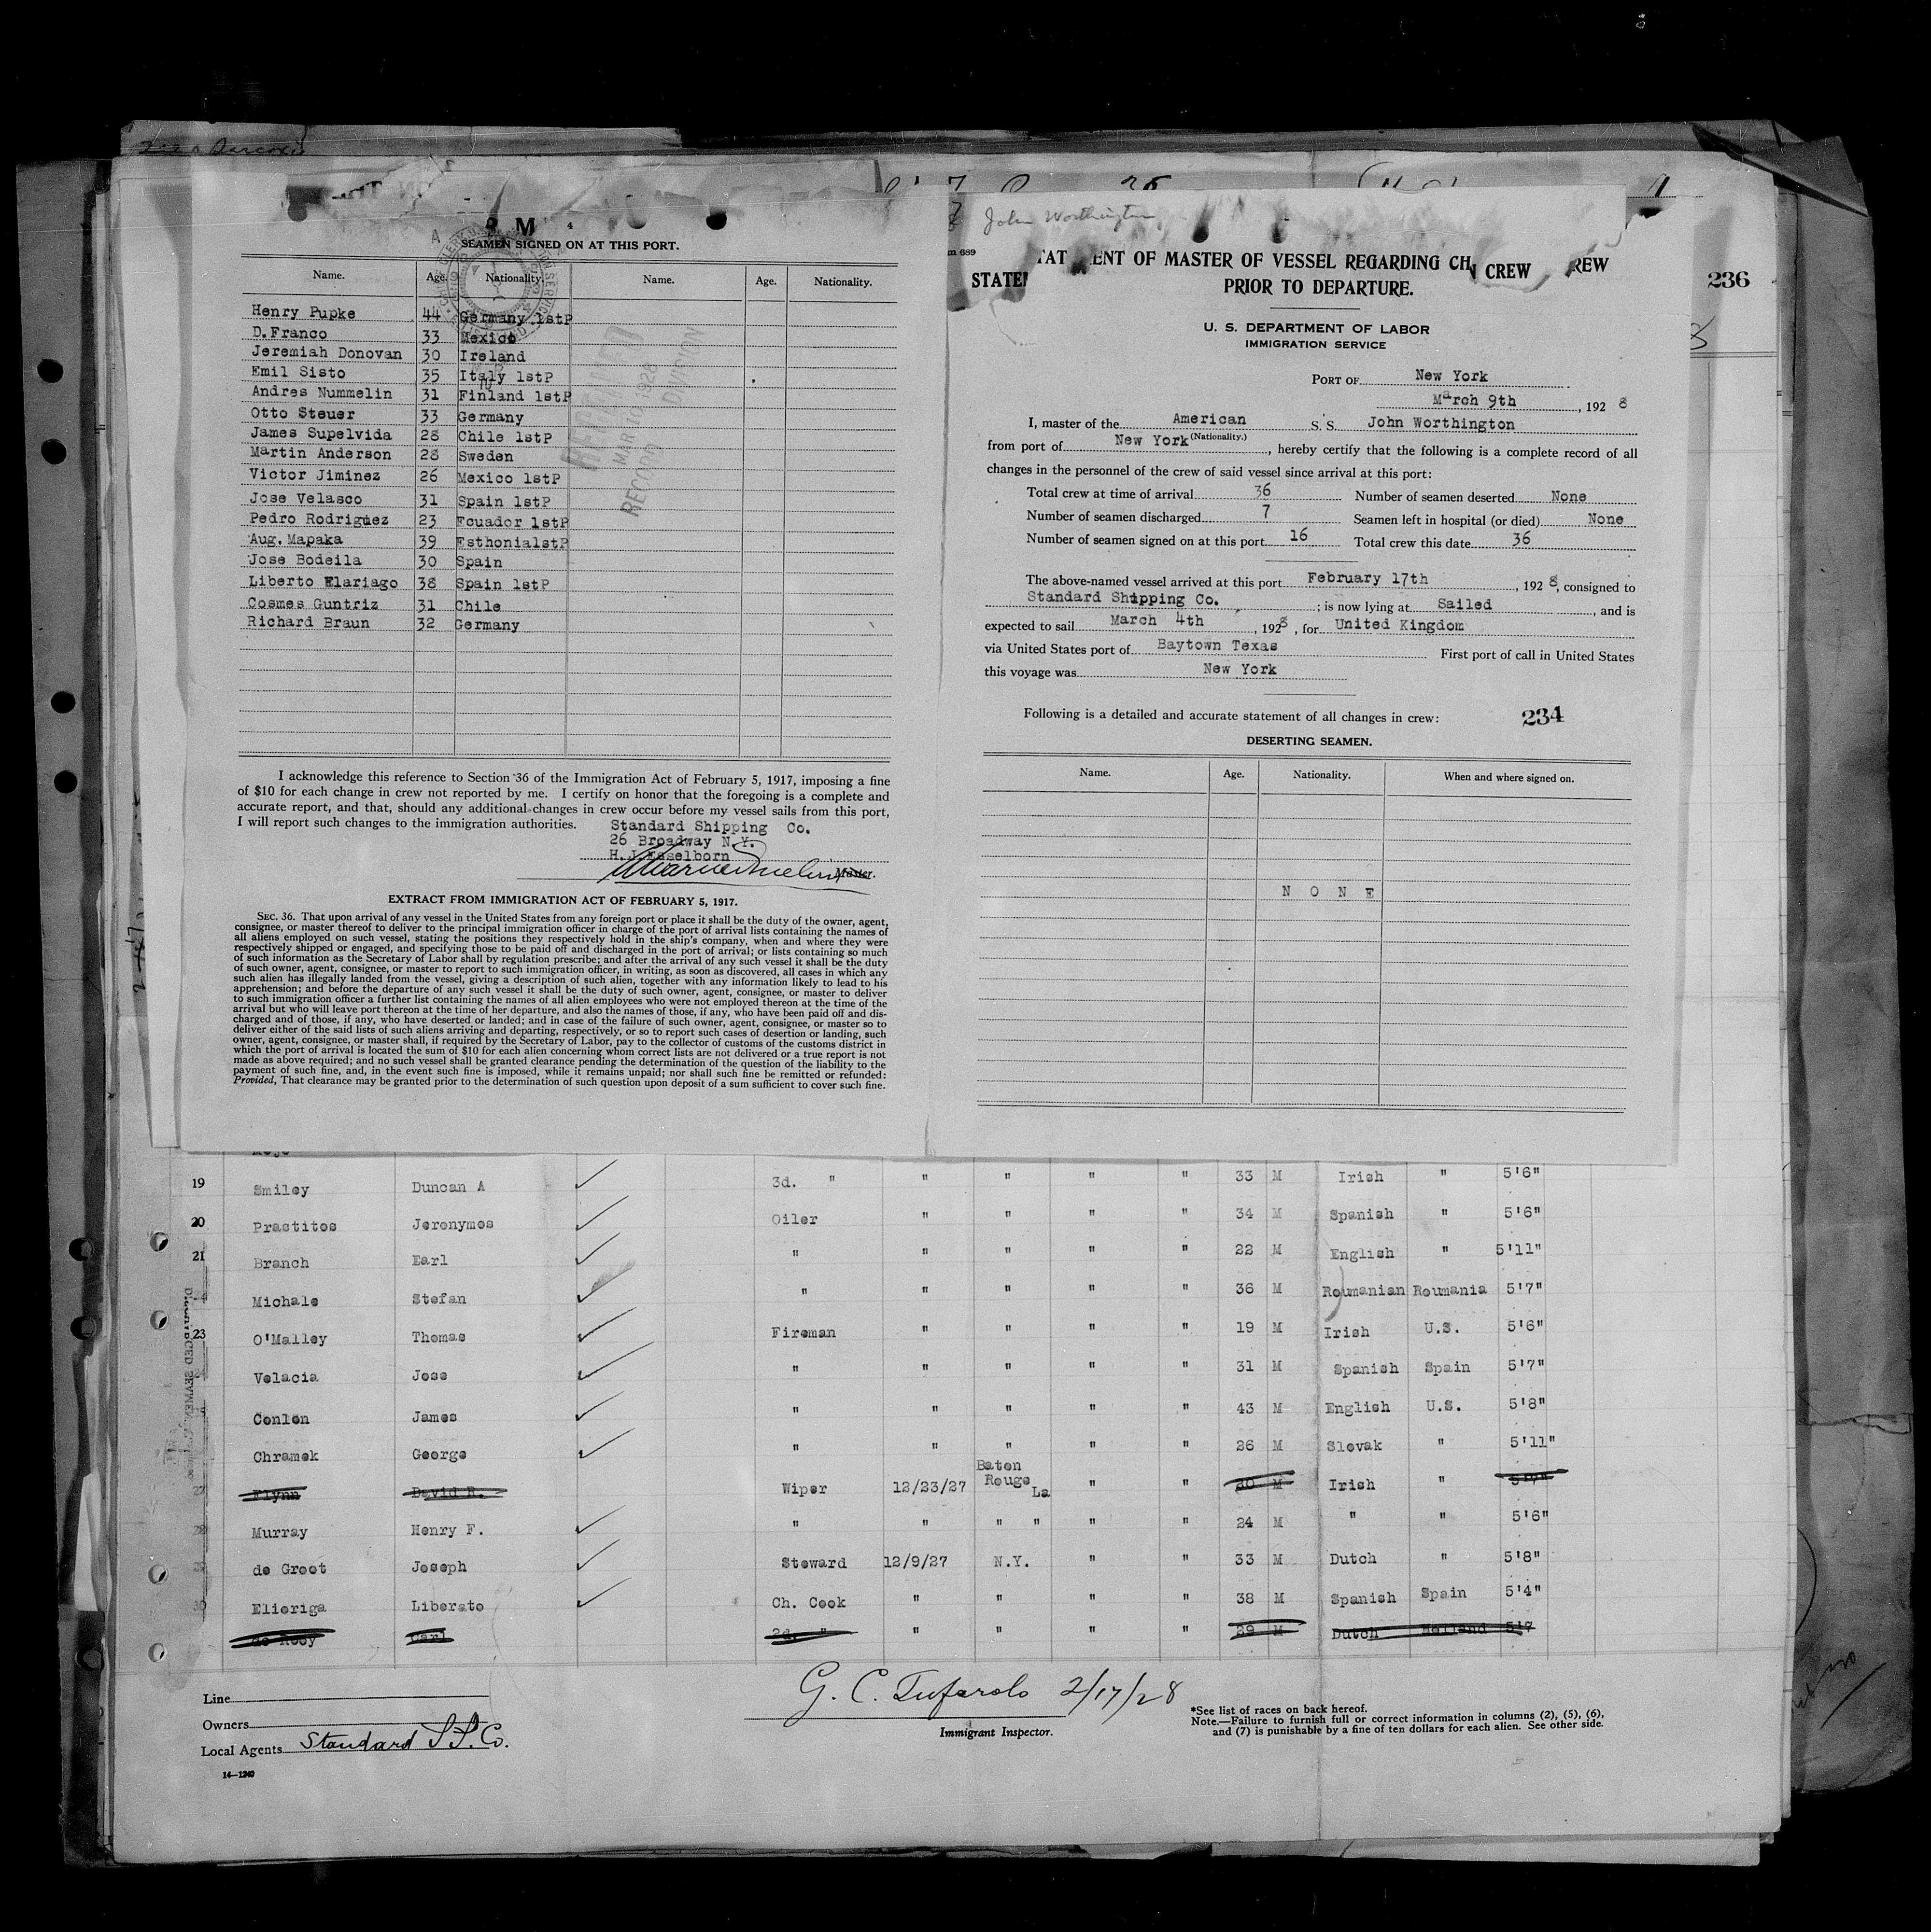 SEAMEN SIGNED ON AT THIS PORT.
Name. Age. Nationality. Name. Age. Nationality.
Henry Pupke 44 Germany 1stP
D.Franco 33 Mexico
Jeremiah Donovan 30 Ireland
Emil Sisto 35 Italy 1stP
Andres Nummelin 31 Finland 1stP
Otto Steuer 33 Germany
James Supelvida 28 Chile 1stP
Martin Anderson 28 Sweden
Victor Jiminez 26 Mexico 1stP
Jose Velasco 31 Spain 1stP
Pedro Rodriguez 23 Ecuador 1stP
Aug. Mapaka 39 Esthonia1stP
Jose Bodeila 30 Spain
Liberto Elariago 38 Spain 1stP
Cosmes Guntriz 31 Chile
Richard Braun 32 Germany
MAR 10 1928
RECORD DIVISION
I acknowledge this reference to Section 36 of the Immigration Act of February 5, 1917, imposing a fine
of $10 for each change in crew not reported by me. I certify on honor that the foregoing is a complete and
accurate report, and that, should any additional changes in crew occur before my vessel sails from this port,
I will report such changes to the immigration authorities.
Standard Shipping Co.
26 Broadway N.Y.
H.J.Esselborn
Master.
EXTRACT FROM IMMIGRATION ACT OF FEBRUARY 5, 1917.
SEC. 36. That upon arrival of any vessel in the United States from any foreign port or place it shall be the duty of the owner, agent,
consignee, or master thereof to deliver to the principal immigration officer in charge of the port of arrival lists containing the names of
all aliens employed on such vessel, stating the positions they respectively hold in the ship's company, when and where they were
respectively shipped or engaged, and specifying those to be paid off and discharged in the port of arrival; or lists containing so much
of such information as the Secretary of Labor shall by regulation prescribe; and after the arrival of any such vessel it shall be the duty
of such owner, agent, consignee, or master to report to such immigration officer, in writing, as soon as discovered, all cases in which any
such alien has illegally landed from the vessel, giving a description of such alien, together with any information likely to lead to his
apprehension; and before the departure of any such vessel it shall be the duty of such owner, agent, consignee, or master to deliver
to such immigration officer a further list containing the names of all alien employees who were not employed thereon at the time of the
arrival but who will leave port thereon at the time of her departure, and also the names of those, if any, who have been paid off and dis-
charged and of those, if any, who have deserted or landed; and in case of the failure of such owner, agent, consignee, or master so to
deliver either of the said lists of such aliens arriving and departing, respectively, or so to report such cases of desertion or landing, such
owner, agent, consignee, or master shall, if required by the Secretary of Labor, pay to the collector of customs of the customs district in
which the port of arrival is located the sum of $10 for each alien concerning whom correct lists are not delivered or a true report is not
made as above required; and no such vessel shall be granted clearance pending the determination of the question of the liability to the
payment of such fine, and, in the event such fine is imposed, while it remains unpaid; nor shall such fine be remitted or refunded:
Provided, That clearance may be granted prior to the determination of such question upon deposit of a sum sufficient to cover such fine.
John Worthington
689
ENT OF MASTER OF VESSEL REGARDING CH CREW
PRIOR TO DEPARTURE.
236
U. S. DEPARTMENT OF LABOR
IMMIGRATION SERVICE
PORT OF New York
March 9th, 1928
I, master of the American S. S. John Worthington
(Nationality.)
from port of New York, hereby certify that the following is a complete record of all
changes in the personnel of the crew of said vessel since arrival at this port:
Total crew at time of arrival 36 Number of seamen deserted None
Number of seamen discharged 7 Seamen left in hospital (or died) None
Number of seamen signed on at this port 16 Total crew this date 36
The above-named vessel arrived at this port February 17th, 1928, consigned to
Standard Shipping Co.; is now lying at Sailed, and is
expected to sail March 4th, 1928, for United Kingdom
via United States port of Baytown Texas First port of call in United States
this voyage was New York
Following is a detailed and accurate statement of all changes in crew: 234
DESERTING SEAMEN.
Name. Age. Nationality. When and where signed on.
N O N E
19 Smiley Duncan A 3d. " " " " " 33 M Irish " 5'6"
20 Prastitos Jeronymos Oiler " " " " 34 M Spanish " 5'6"
21 Branch Earl " " " " " 22 M English " 5'11"
Michale Stefan " " " " " 36 M Roumanian Roumania 5'7"
23 O'Malley Thomas Fireman " " " " 19 M Irish U.S. 5'6"
Velacia Jose " " " " " 31 M Spanish Spain 5'7"
Conlon James " " " " " 43 M English U.S. 5'8"
Chramek George " " " " " 26 M Slovak " 5'11"
27 Flynn David R. Wiper 12/23/27 Baton Rouge La " " 20 M Irish " 5'7"
28 Murray Henry F. " " " " " " 24 M " " 5'6"
de Groot Joseph Steward 12/9/27 N.Y. " " 33 M Dutch " 5'8"
30 Elieriga Liberato Ch. Cook " " " " 38 M Spanish Spain 5'4"
de Rooy Carl 2d. " " " " " 29 M Dutch Holland 5'7
Line
Owners
Local Agents Standard S.S. Co.
14—1240
G. C. Tufarolo 2/17/28
Immigrant Inspector.
*See list of races on back hereof.
Note.—Failure to furnish full or correct information in columns (2), (5), (6),
and (7) is punishable by a fine of ten dollars for each alien. See other side.